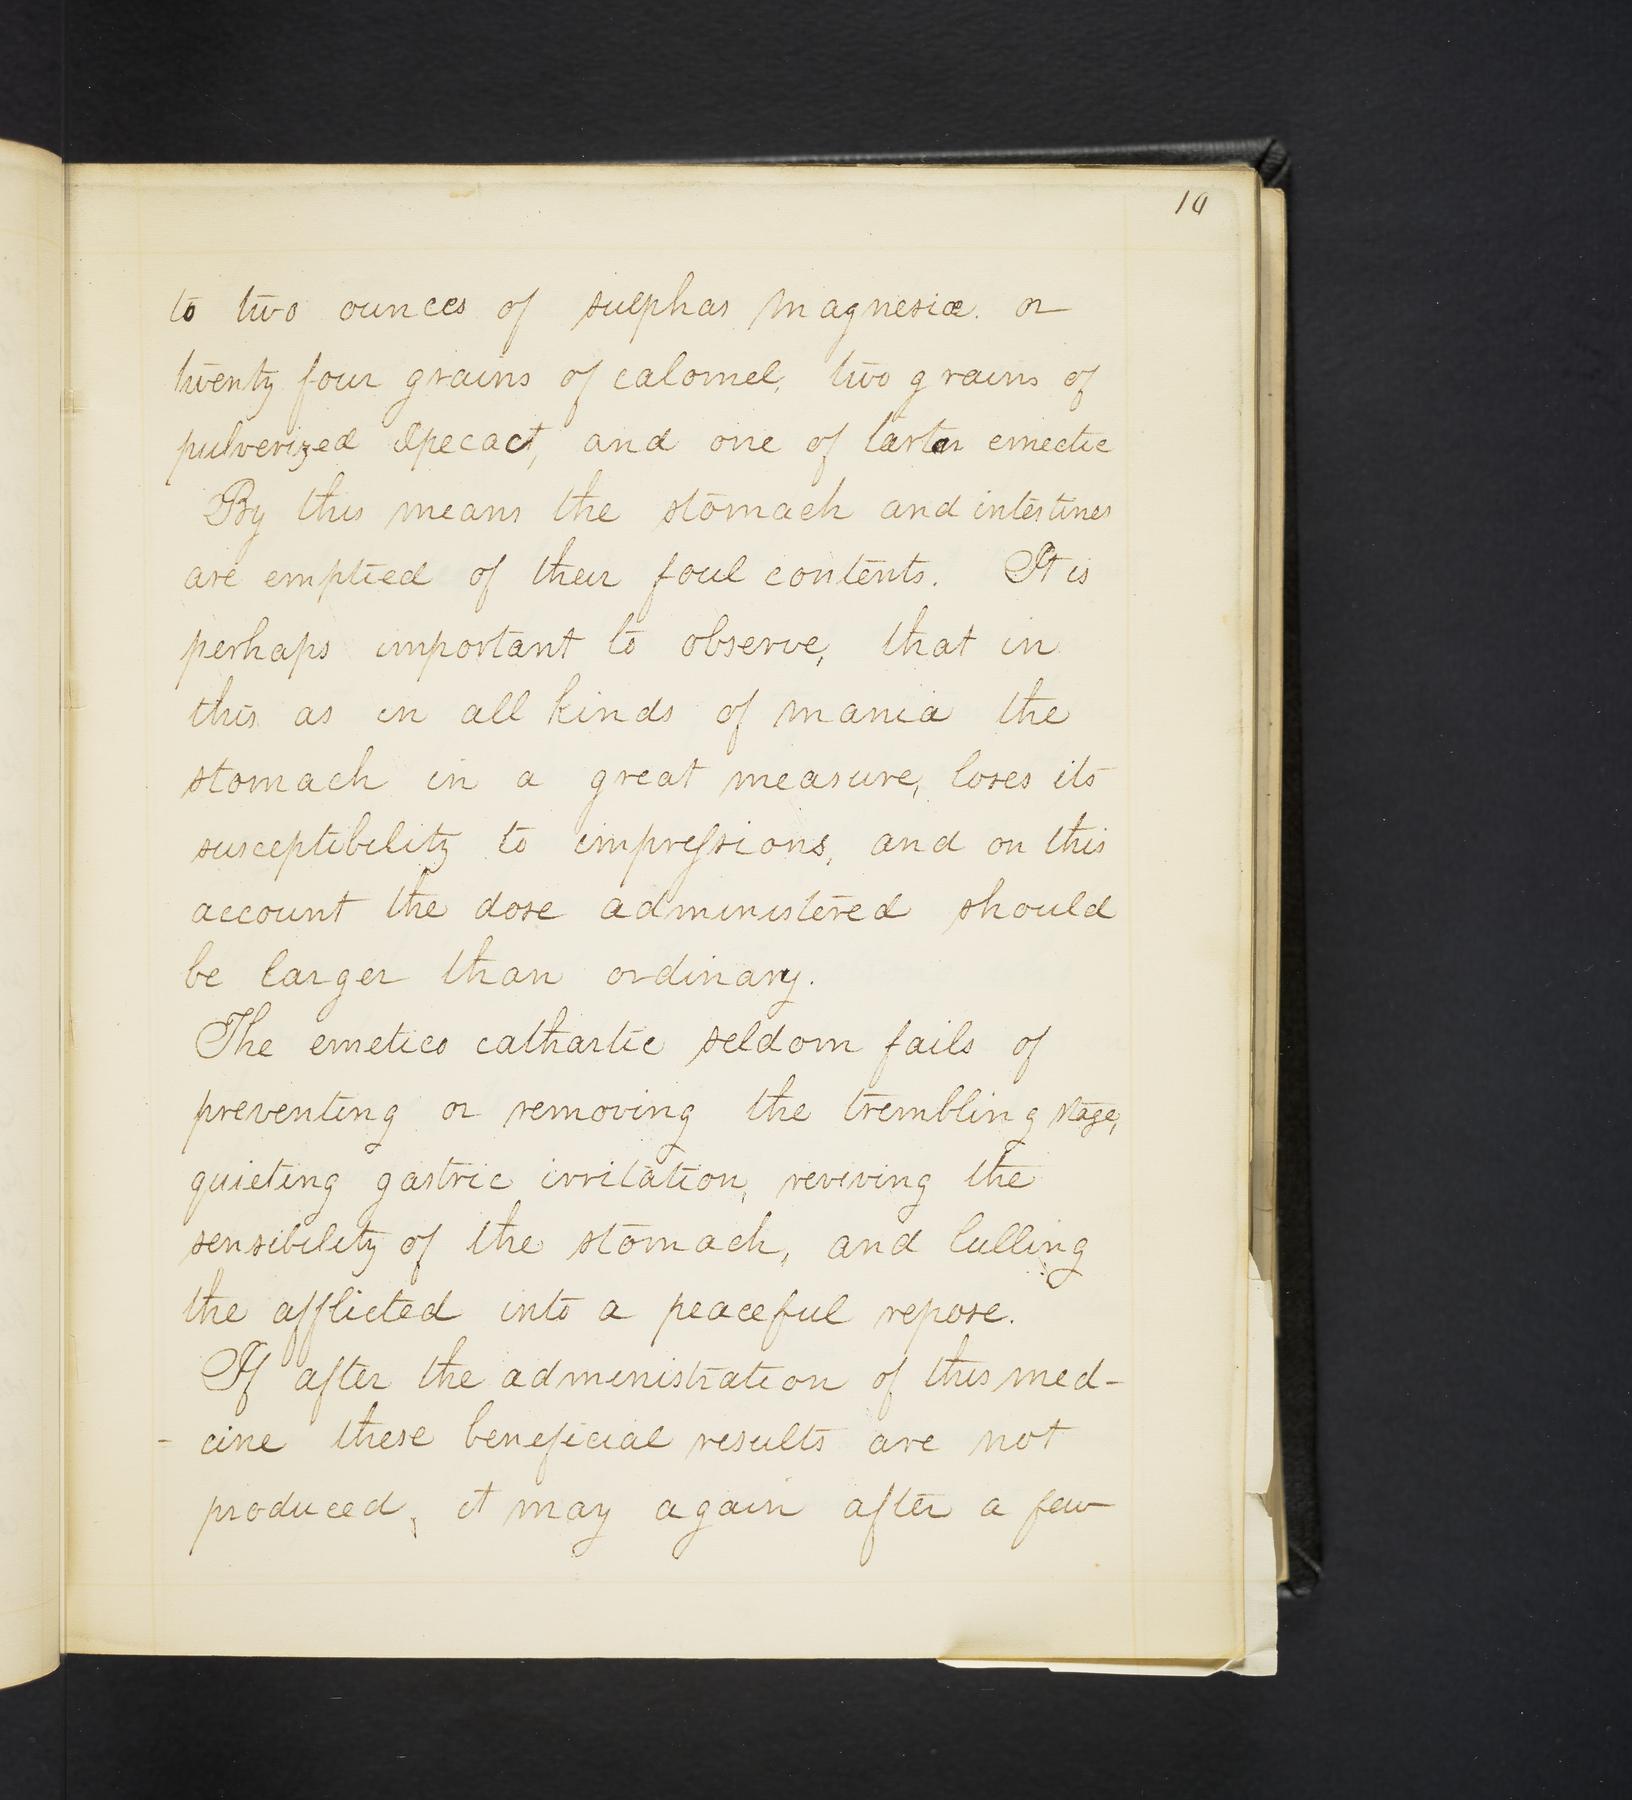 10
to two ounces of sulphas magnesiæ. or
twenty four grains of calomel, two grains of
pulverized Ipecact, and one of tartar emectic
By this means the stomach and intestines
are emptied of their foul contents. It is
perhaps important to observe, that in
this as in all kinds of mania the
stomach in a great measure, loses its
susceptibility to impreſsions, and on this
account the dose administered should
be larger than ordinary.
The emetico cathartic seldom fails of
preventing or removing the trembling stage,
quieting gastric irritation, reviving the
sensibility of the stomach, and lulling
the afflicted into a peaceful repose.
If after the administration of this med-
-cine these beneficial results are not
produced, it may again after a few